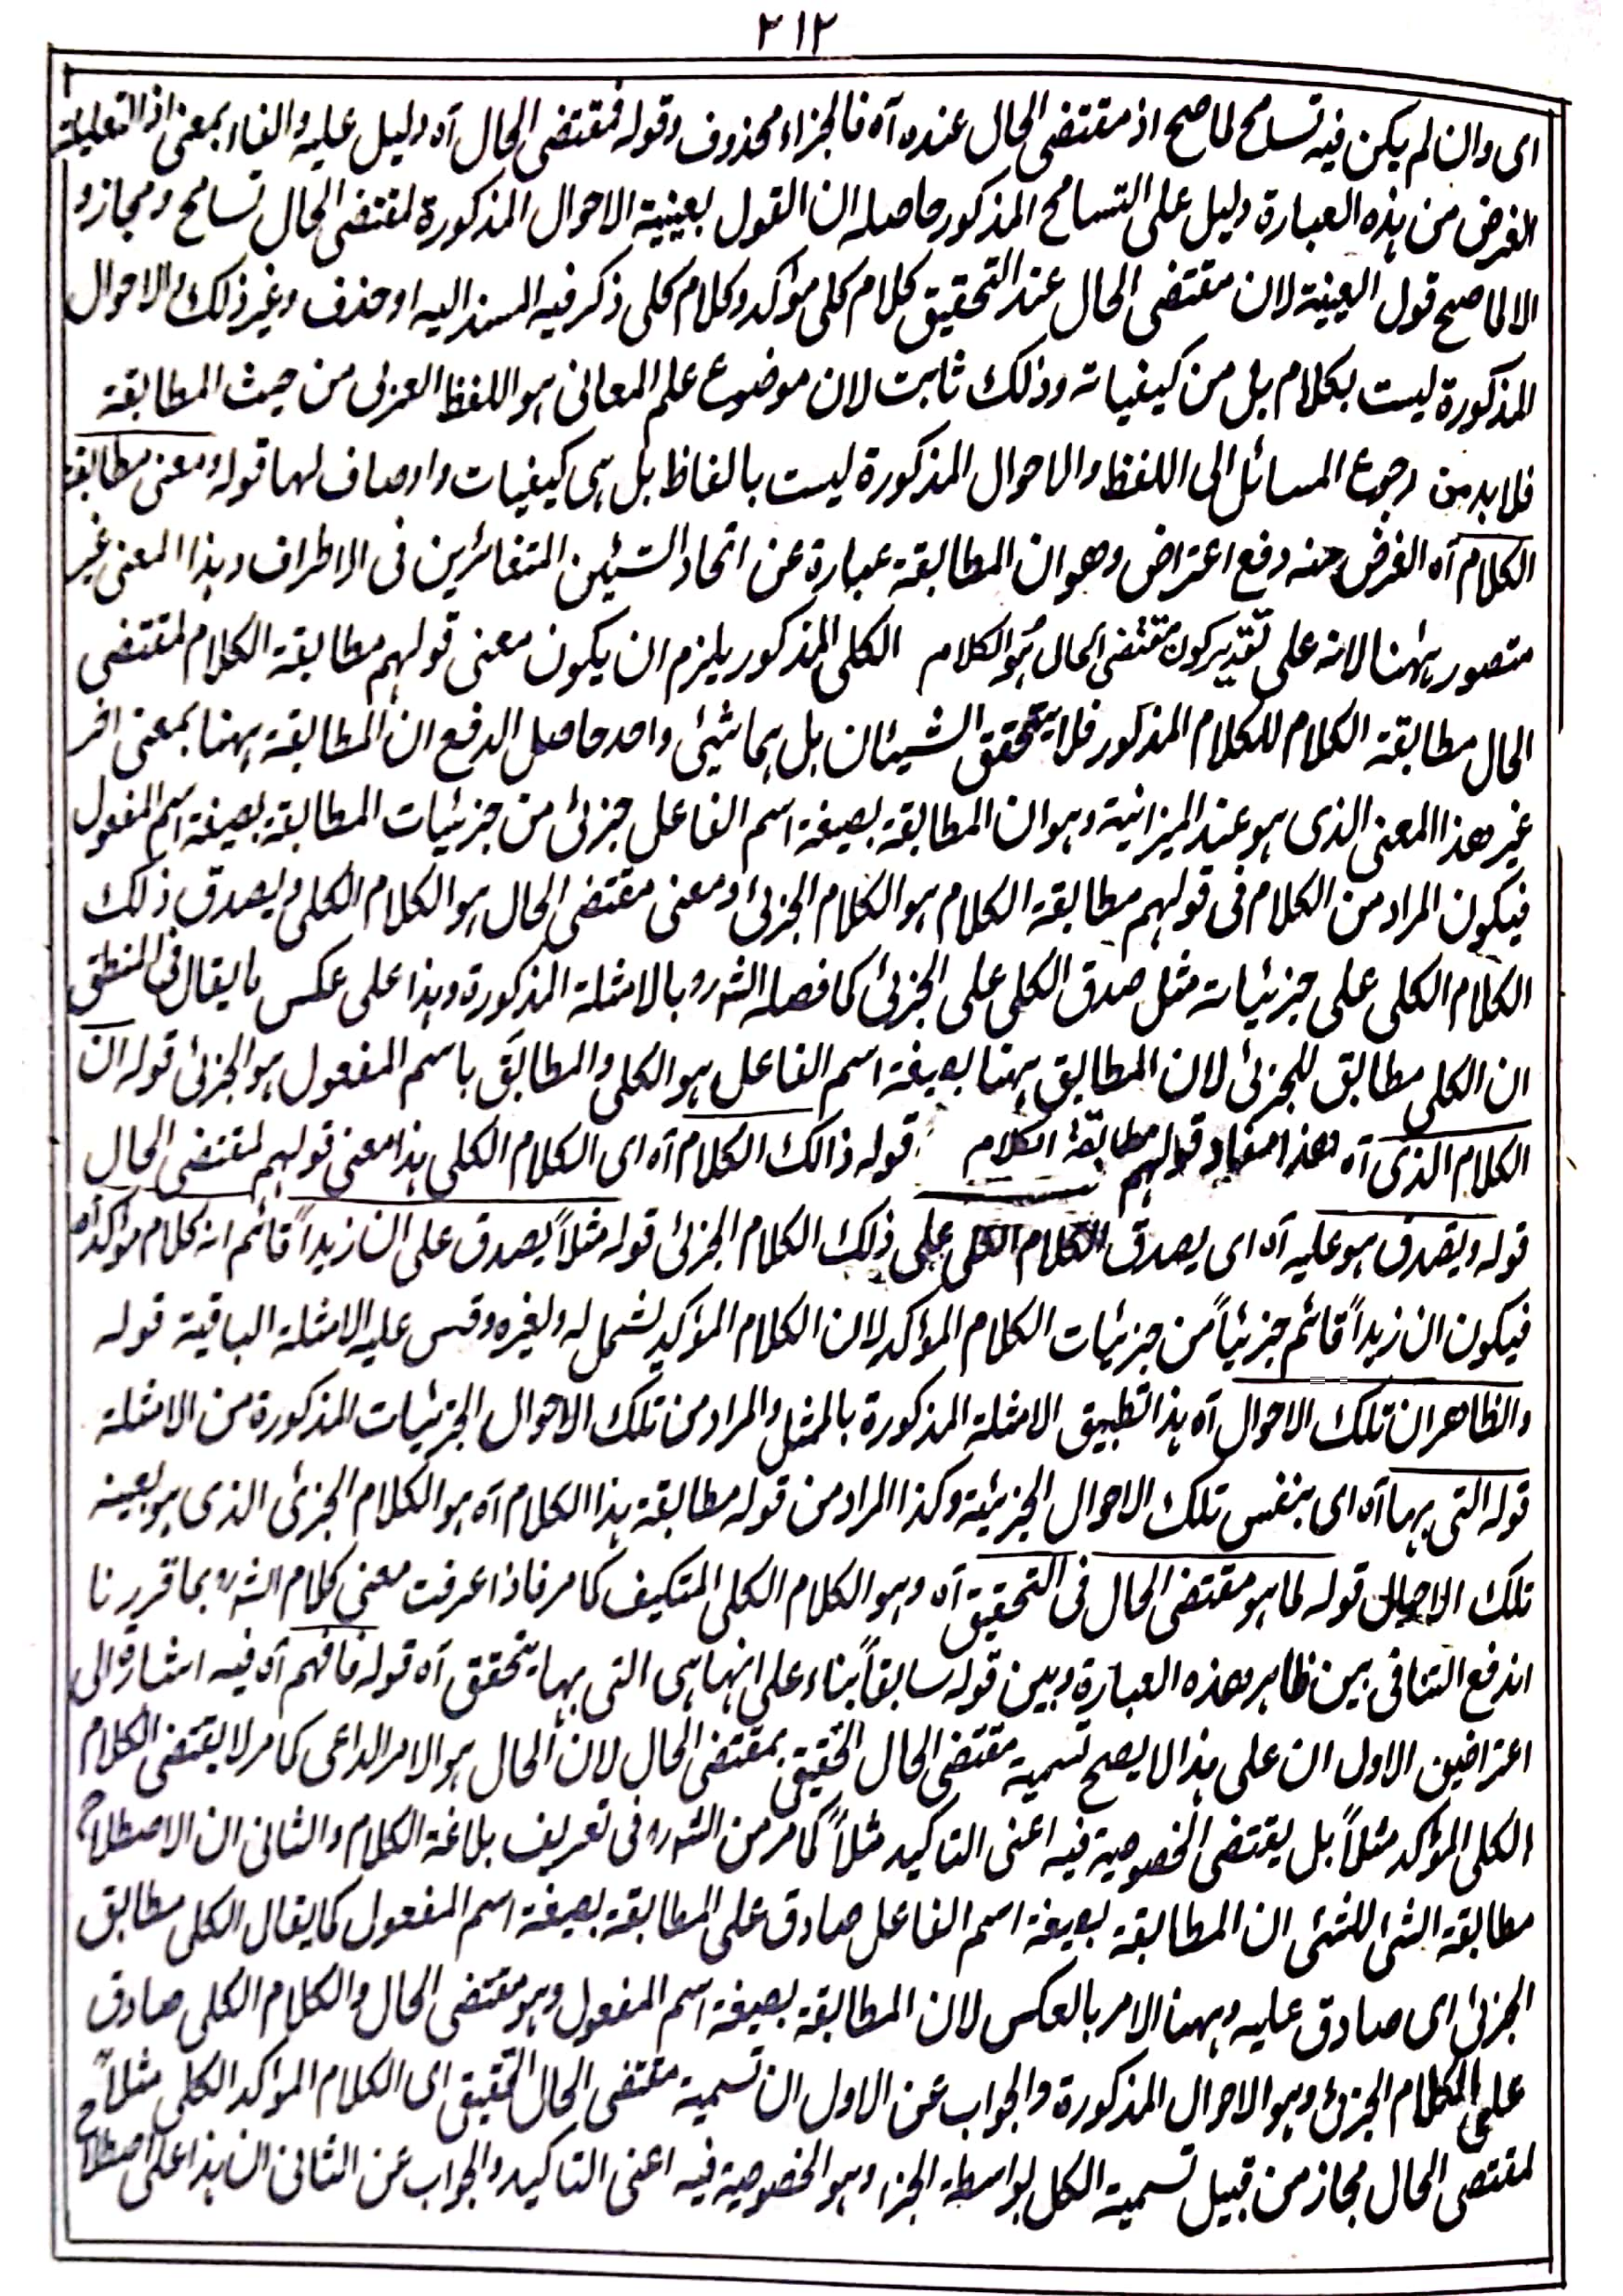 ٢١٢
اى وان لم يكن فيه تسامح لما صح اذ مقتضى الحال عنده آه فالجزاء محذوف وقوله فمقتضى الحال آه دليل عليه والفاء بمعنى اذ التعليلية
الغرض من هذه العبارة دليل على التسامح المذكور حاصله ان القول بعينية الاحوال المذكورة لمقتضى الحال تسامح ومجاز و
الا لما صح قول العينية لان مقتضى الحال عند التحقيق كلام كلى مؤكد وكلام كلى ذكر فيه المسند اليه او حذف وغير ذلك والاحوال
المذكورة ليست بكلام بل من كيفياته وذلك ثابت لان موضوع علم المعانى هو اللفظ العربى من حيث المطابقة
فلا بد من رجوع المسائل الى اللفظ والاحوال المذكورة ليست بالفاظ بل هى كيفيات واوصاف لها قوله ومعنى مطابقة
الكلام آه الغرض منه دفع اعتراض وهو ان المطابقة عبارة عن اتحاد الشيئين المتغائرين فى الاطراف وهذا المعنى غير
متصور ههنا لانه على تقدير كون مقتضى الحال هو الكلام الكلى المذكور يلزم ان يكون معنى قولهم مطابقة الكلام لمقتضى
الحال مطابقة الكلام للكلام المذكور فلا يتحقق الشيئان بل هما شيئ واحد حاصل الدفع ان المطابقة ههنا بمعنى اخر
غير هذا المعنى الذى هو عند الميزانية وهو ان المطابقة بصيغة اسم الفاعل جزئى من جزئيات المطابقة بصيغة اسم المفعول
فيكون المراد من الكلام فى قولهم مطابقة الكلام هو الكلام الجزئى ومعنى مقتضى الحال هو الكلام الكلى ويصدق ذلك
الكلام الكلى على جزئياته مثل صدق الكلى على الجزئى كما فصله الشهرو بالامثلة المذكورة وهذا على عكس ما يقال فى المنطق
ان الكلى مطابق للجزئى لان المطابق ههنا بصيغة اسم الفاعل هو الكلى والمطابَق باسم المفعول هو الجزئى قوله ان
الكلام الذى آه هذا مفاد قولهم مطابقة الكلام قوله ذالك الكلام آه اى الكلام الكلى هذا معنى قولهم لمقتضى الحال
قوله ويصدق هو عليه آه اى يصدق الكلام الكلى على ذلك الكلام الجزئى قوله مثلاً يصدق على ان زيداً قائم انه كلام مؤكد آه
فيكون ان زيداً قائم جزئياً من جزئيات الكلام المؤكد لان الكلام المؤكد يشمل له ولغيره وقس عليه الامثلة الباقية قوله
والظاهر ان تلك الاحوال آه هذا تطبيق الامثلة المذكورة بالمثل والمراد من تلك الاحوال الجزئيات المذكورة من الامثلة
قوله التى بها آه اى بنفس تلك الاحوال الجزئية وكذا المراد من قوله مطابقة هذا الكلام آه هو الكلام الجزئى الذى هو بعينه
تلك الاحوال قوله لما هو مقتضى الحال فى التحقيق آه وهو الكلام الكلى المتكيف كما مر فاذا عرفت معنى كلام الشهرو بما قررنا
اندفع التنافى بين ظاهر هذه العبارة وبين قوله سابقاً بناء على انها هى التى بها يتحقق آه قوله فافهم آه فيه اشارة الى
اعتراضين الاول ان على هذا لا يصح تسمية مقتضى الحال التحقيقى بمقتضى الحال لان الحال هو الامر الداعى كما مر لا يقتضى الكلام
الكلى المؤكد مثلاً بل يقتضى الخصوصية فيه اعنى التاكيد مثلاً كما مر من الشهره فى تعريف بلاغة الكلام والثانى ان الاصطلاح
مطابقة الشئ للشئى ان المطابقة بصيغة اسم الفاعل صادق على المطابقة بصيغة اسم المفعول كما يقال الكلى مطابق
الجزئى اى صادق عليه وههنا الامر بالعكس لان المطابقة بصيغة اسم المفعول وهو مقتضى الحال والكلام الكلى صادق
على الكلام الجزئى وهو الاحوال المذكورة والجواب عن الاول ان تسمية مقتضى الحال التحقيقى اى الكلام المؤكد الكلى مثلاً
لمقتضى الحال مجاز من قبيل تسمية الكل بواسطة الجزء وهو الخصوصية فيه اعنى التاكيد والجواب عن الثانى ان هذا على اصطلاح